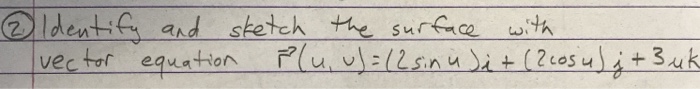 ② Identify and sketch the surface with
vector equation r⃗(u, v) = (2 sin u)i + (2 cos u)j + 3uk